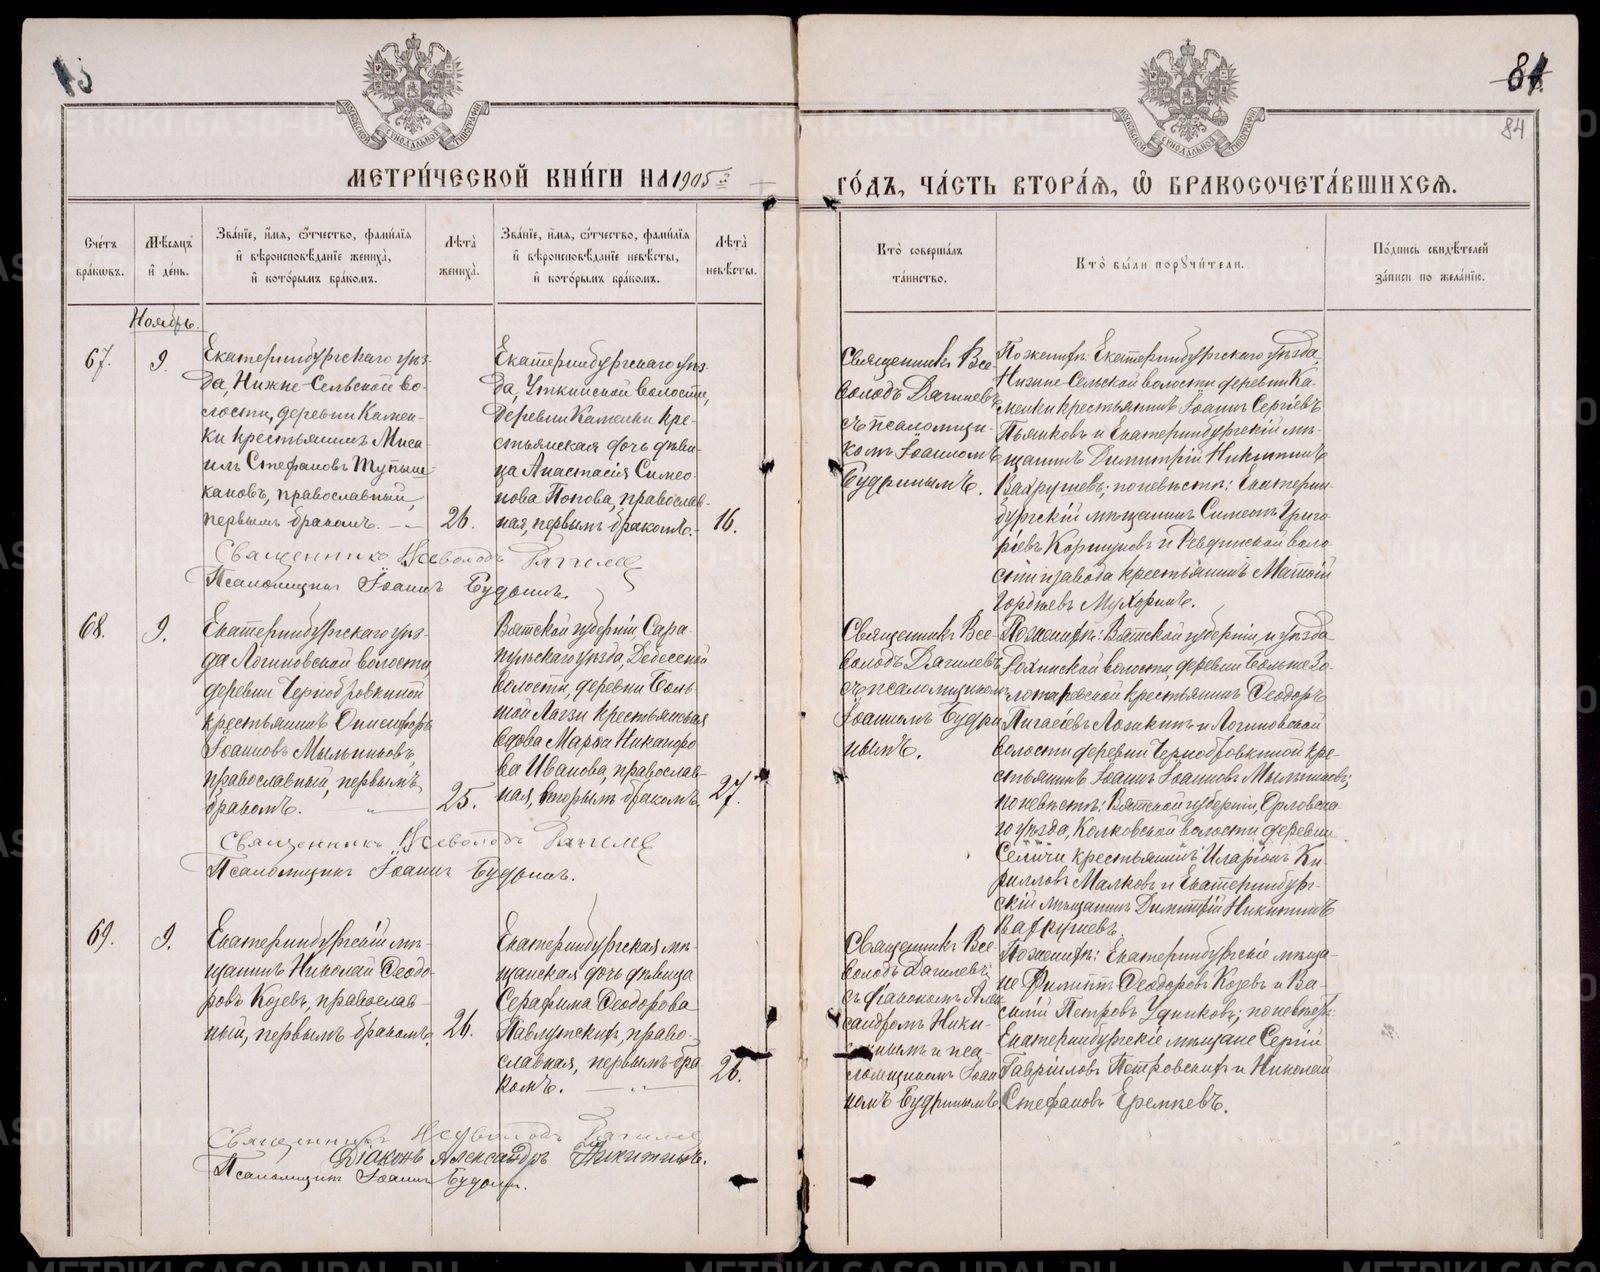 83
84
МЕТРИ́ЧЕСКОЙ КНИ́ГИ НА 1905й
ГО́ДЪ, ЧА́СТЬ ВТОРА́Ѧ, Ѽ БРАКОСОЧЕТА́ВШИХСѦ.
Сче́тъ бра́кѡвъ.
Мѣ́сяцъ и́ де́нь.
Зва́нїе, и́мя, ѻ́тчество, фами́лїя и́ вѣроисповѣ́данїе жениха̀, и́ кото́рымъ бра́комъ.
Лѣта̀ жениха̀.
Зва́нїе, и́мя, ѻ́тчество, фами́лїя и́ вѣроисповѣ́данїе невѣ́сты, и́ кото́рымъ бра́комъ.
Лѣта̀ невѣ́сты.
Кто̀ соверша́лъ та́инство.
Кто̀ бы́ли порꙋчи́тели.
По́дпись свидѣ́телей за́писи по жела́нїю.
Ноябрь.
67.
9.
Екатеринбургскаго уѣз-
да, Нижне-Сельской во-
лости, деревни Камен-
ки крестьянинъ Миса-
илъ Стефановъ Тупыш-
кановъ, православный,
первымъ бракомъ.
26.
Екатеринбургскаго уѣз-
да, Уткинской волости,
деревни Каменки кре-
стьянская дочь дѣви-
ца Анастасія Симео-
нова Попова, православ-
ная, первымъ бракомъ.
16.
Священникъ Все-
володъ Дягилевъ
съ псаломщи-
комъ Іоанномъ
Будринымъ.
По женихѣ: Екатеринбургскаго уѣзда,
Нижне-Сельской волости деревни Ка-
менки крестьянинъ Іоаннъ Сергіевъ
Пьянковъ и Екатеринбургскій мѣ-
щанинъ Димитрій Никитинъ
Вахрушевъ; по невѣстѣ: Екатерин-
бургскій мѣщанинъ Симеонъ Григо-
ріевъ Коршуновъ и Ревдинской воло-
сти и завода крестьянинъ Матѳій
Гордѣевъ Мухоринъ.
Священникъ Всеволодъ Дягилевъ
Псаломщикъ Іоаннъ Будринъ.
68.
9.
Екатеринбургскаго уѣз-
да Логиновской волости
деревни Чернобровкиной
крестьянинъ Онисифоръ
Іоанновъ Мыльниковъ,
православный, первымъ
бракомъ.
25.
Вятской губерніи Сара-
пульскаго уѣзда, Дебесской
волости, деревни Боль-
шой Лагзи крестьянская
вдова Марѳа Никаноро-
ва Иванова, православ-
ная, вторымъ бракомъ.
27.
Священникъ Все-
володъ Дягилевъ
съ псаломщикомъ
Іоанномъ Будри-
нымъ.
По женихѣ: Вятской губерніи и уѣзда
волости, деревни
крестьянинъ Ѳеодоръ
и Логиновской
волости деревни Чернобровкиной кре-
стьянинъ Іоаннъ Іоанновъ Мыльниковъ;
по невѣстѣ: Вятской губерніи, Орловска-
го уѣзда, Колковской волости деревни
крестьянинъ Иларіонъ Ки-
рилловъ Малковъ и Екатеринбург-
скій мѣщанинъ Димитрій Никитинъ
Вахрушевъ.
Священникъ Всеволодъ Дягилевъ
Псаломщикъ Іоаннъ Будринъ.
69.
9.
Екатеринбургскій мѣ-
щанинъ Николай Ѳеодо-
ровъ Козевъ, православ-
ный, первымъ бракомъ.
26.
Екатеринбургская мѣ-
щанская дочь дѣвица
Серафима Ѳеодорова
Павлуцкихъ, право-
славная, первымъ бра-
комъ.
26.
Священникъ Все-
володъ Дягилевъ
съ діакономъ Алек-
сандромъ Ники-
тинымъ и пса-
ломщикомъ Іоан-
номъ Будринымъ.
По женихѣ: Екатеринбургскіе мѣща-
не Филиппъ Ѳеодоровъ Козевъ и Ва-
силій Петровъ Удниковъ; по невѣстѣ:
Екатеринбургскіе мѣщане Сергій
Гавріиловъ Петровскихъ и Николай
Стефановъ Еремѣевъ.
Священникъ Всеволодъ Дягилевъ
Діаконъ Александръ Никитинъ.
Псаломщикъ Іоаннъ Будринъ.